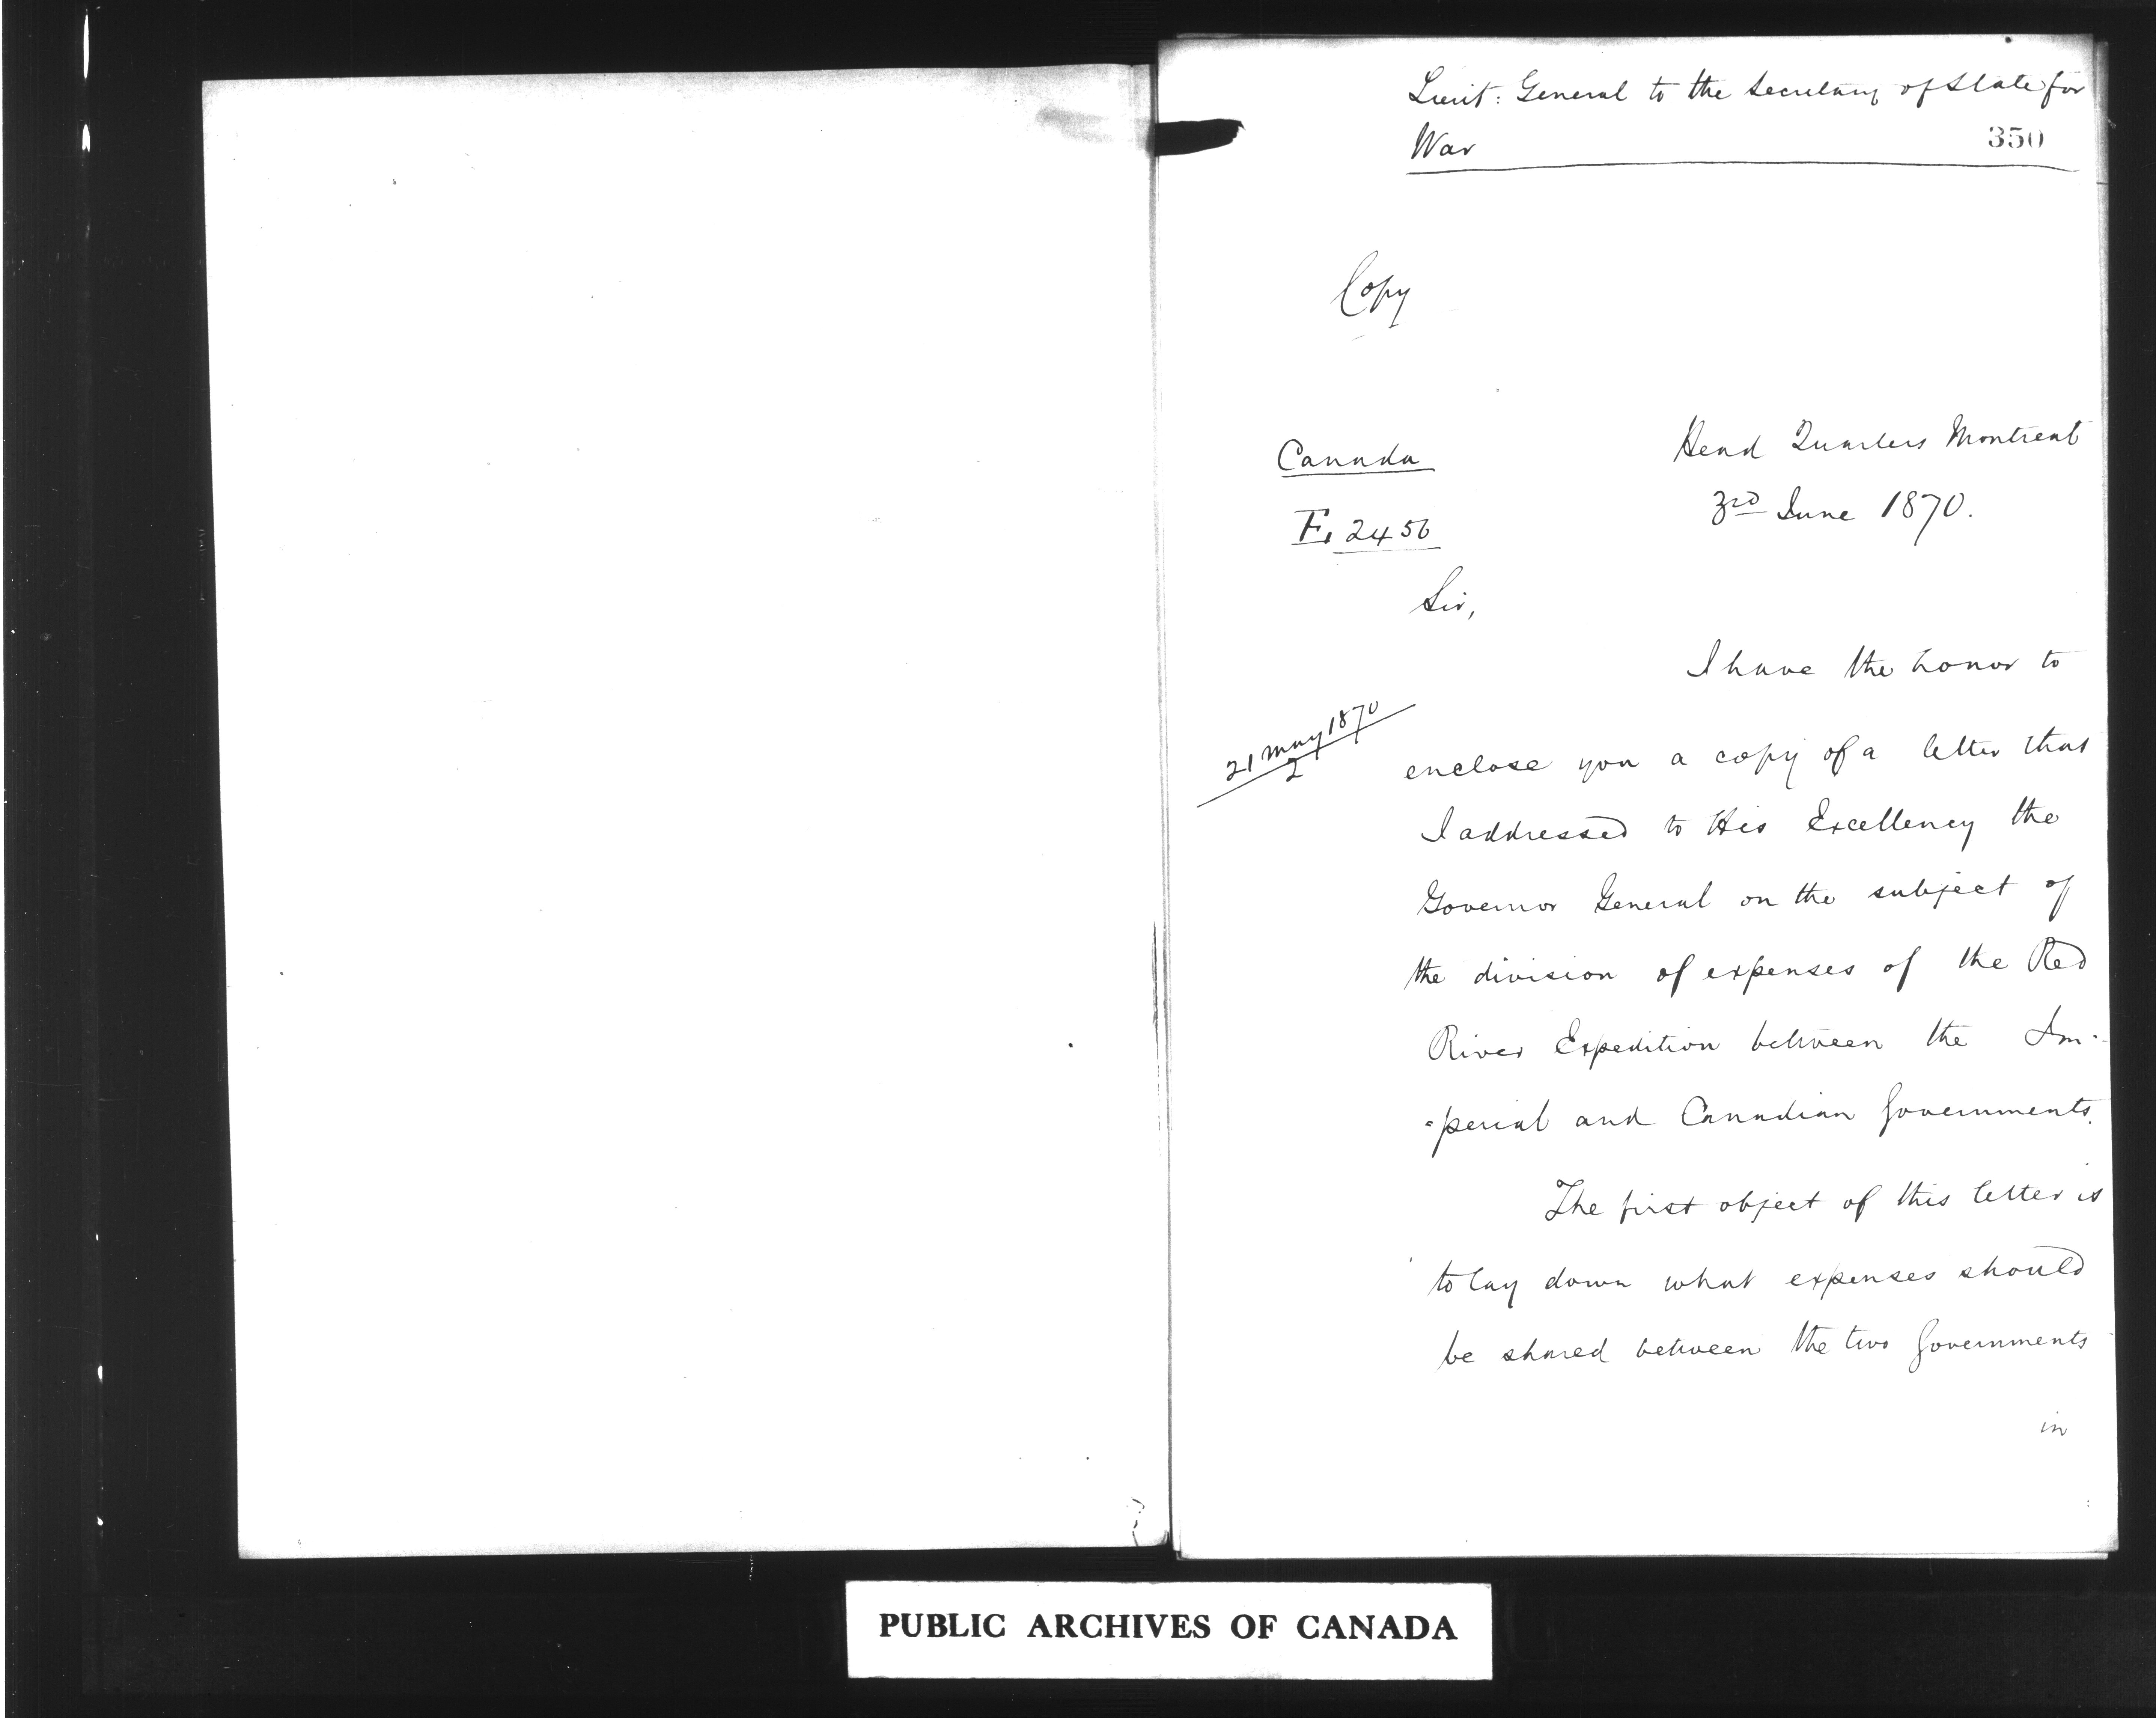 Lieut: General to the Secretary of State for
War
350
Copy
Canada
F. 2456
Head Quarters Montreal
3rd June 1870.
Sir,
I have the honor to
21 May 1870
2
enclose you a copy of a letter that
I addressed to His Excellency the
Governor General on the subject of
the division of expenses of the Red
River Expedition between the Im-
-perial and Canadian Governments.
The first object of this letter is
to lay down what expenses should
be shared between the two Governments
in
PUBLIC ARCHIVES OF CANADA